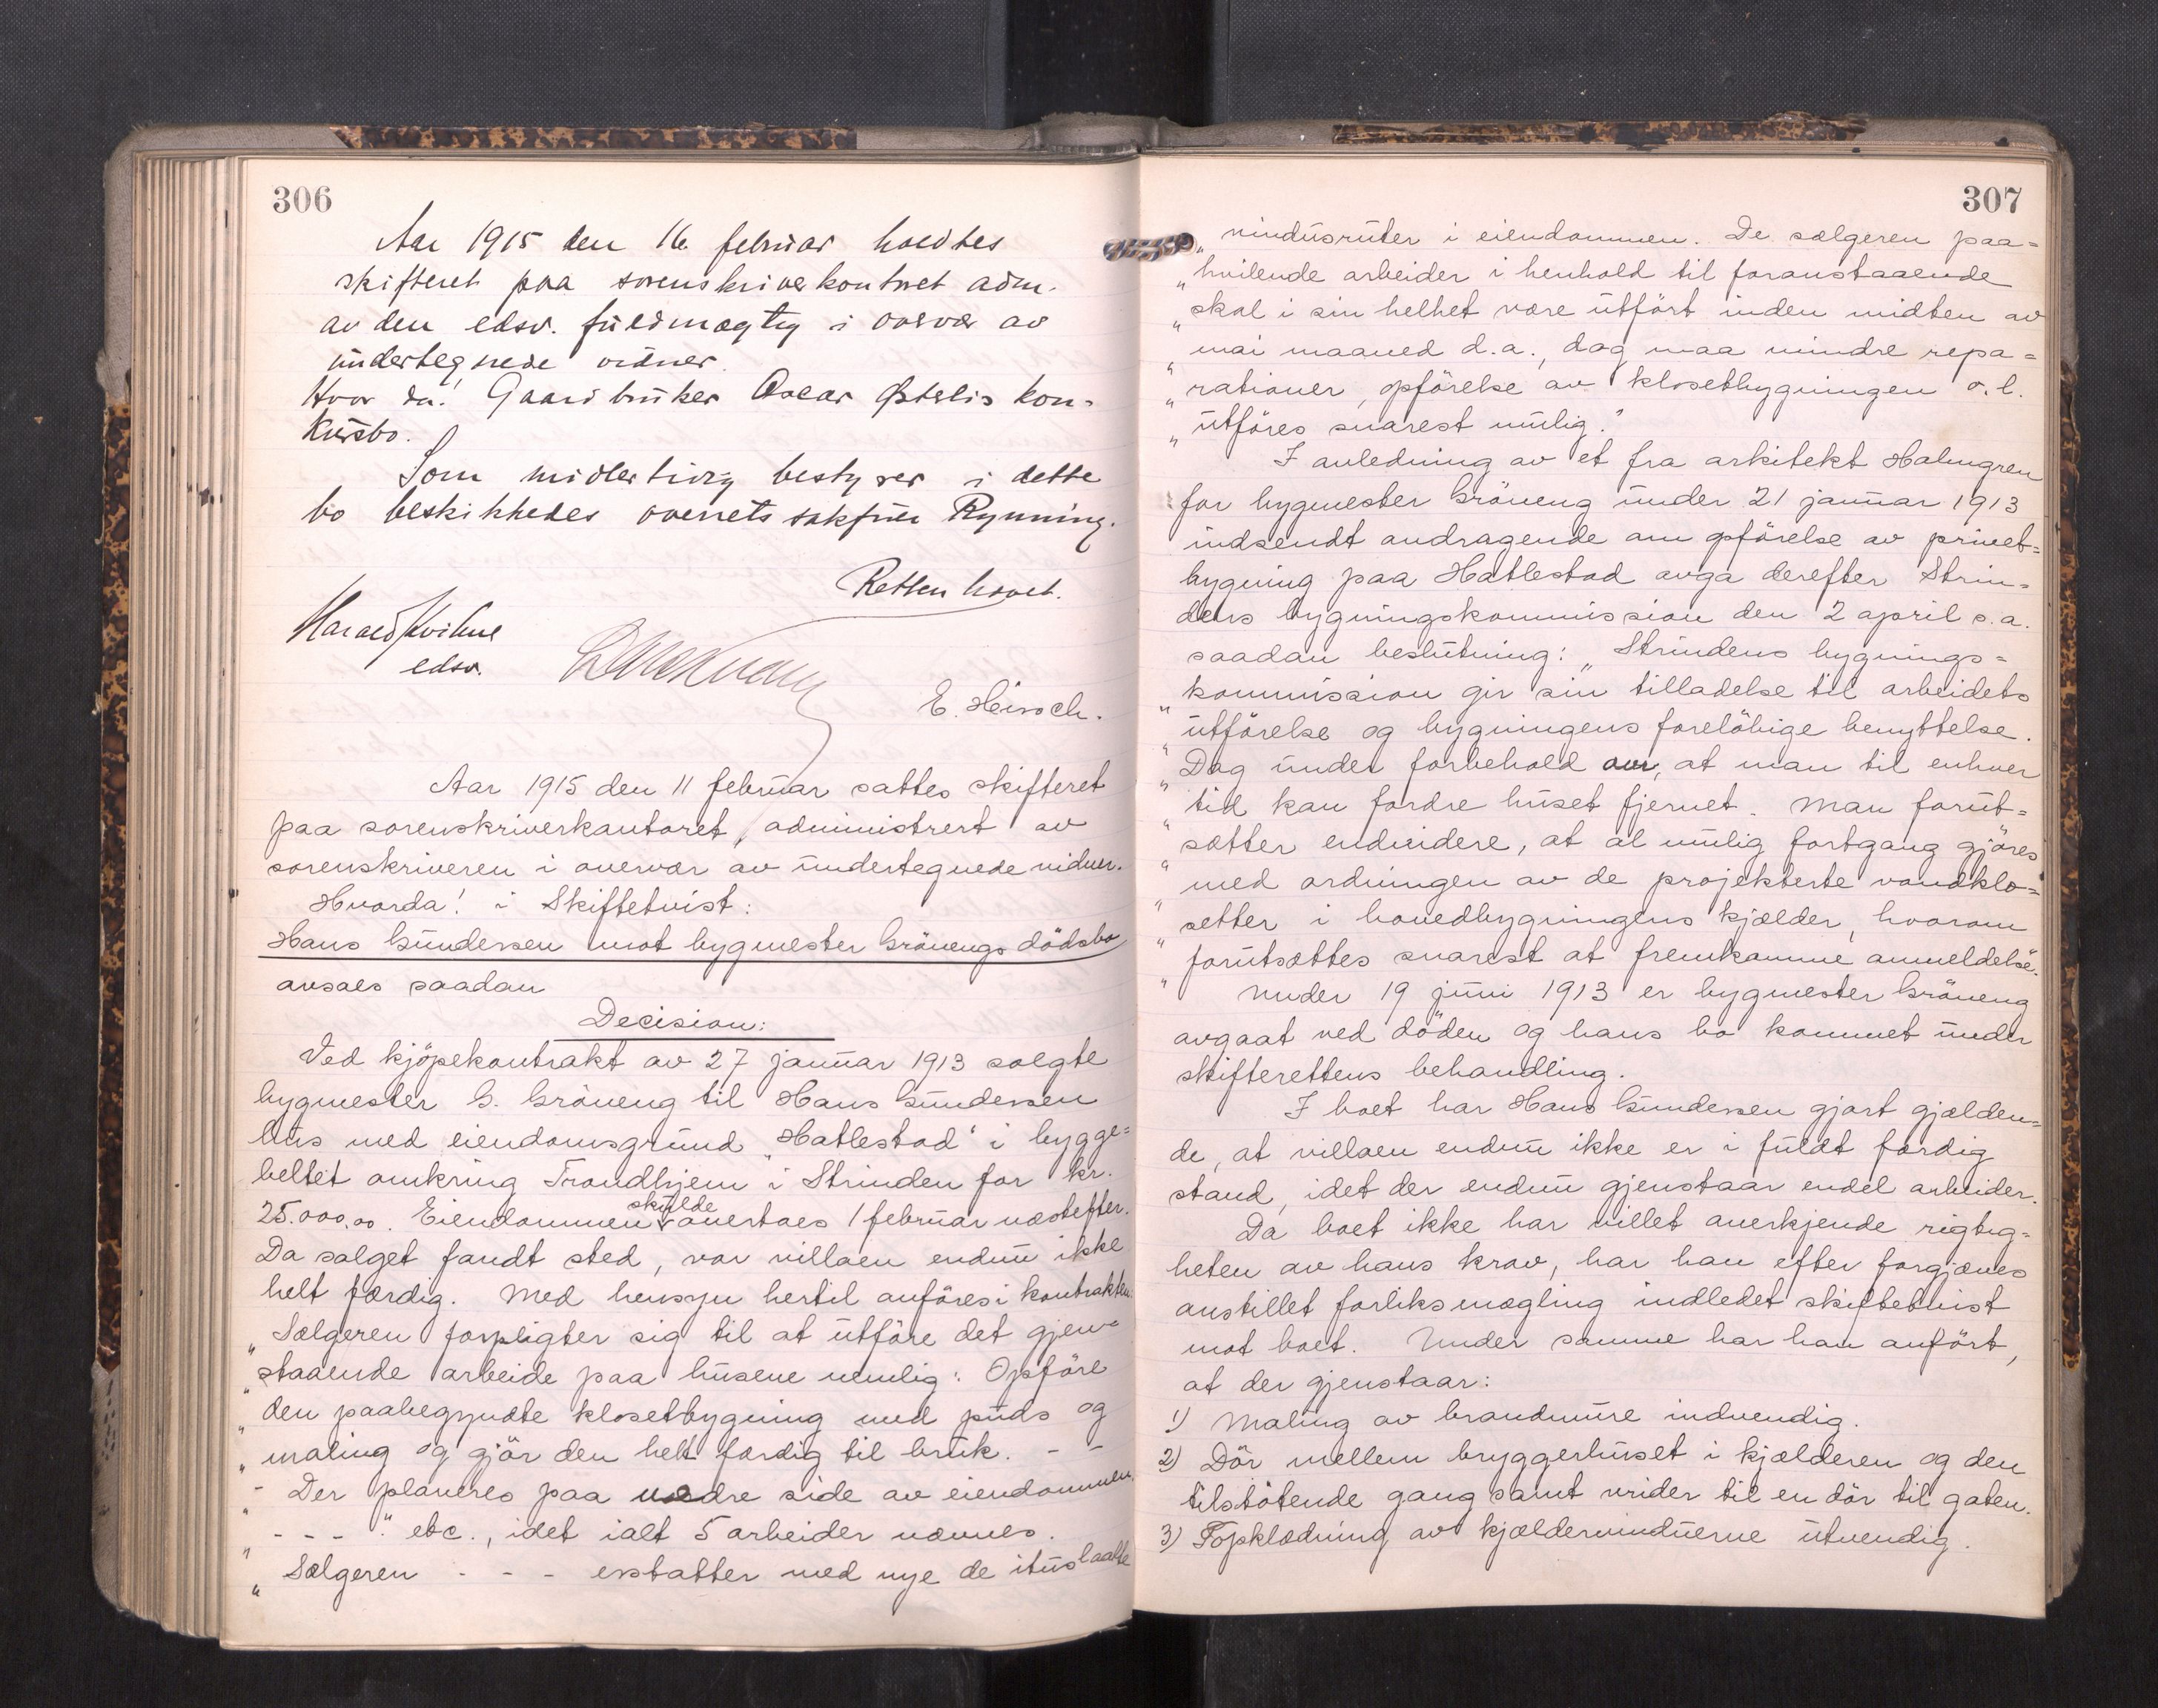 306
Aar 1915 den 16 februar holdtes
skifteret paa sorenskriverkontoret adm.
av den edsv. fuldmægtig i overvær av
undertegnede vidner.
Hvor da! Gaardbruker Oscar Østlis kon-
kursbo.
Som midlertidig bestyrer i dette
bo beskikkedes overretssakfører Rynning.
Retten hævet.
Harald Kvihne
edsv.
E. Hirsch.
Aar 1915 den 11 februar sattes skifteret
paa sorenskriverkontoret, administrert av
sorenskriveren i overvær av undertegnede vidner.
Hvorda! i Skiftetvist:
Hans Gundersen mot bygmester Grönengs dödsbo
avsaes saadan
Decision:
Ved kjöpekontrakt av 27 januar 1913 solgte
bygmester G. Gröneng til Hans Gundersen
hus med eiendomsgrund „Hatlestad" i bygge=
beltet omkring Trondhjem i Strinden for kr.
25.000,00. Eiendommen skulde overtaes 1 februar næstefter.
Da salget fandt sted, var villaen endnu ikke
helt færdig. Med hensyn hertil anföres i kontrakten:
„Sælgeren forpligter sig til at utföre det gjen=
„staaende arbeide paa husene nemlig: Opföre
„den paabegyndte klosetbygning med puds og
„maling og gjör den helt færdig til bruk. - -
„- Der planeres paa nedre side av eiendommen.
„- - - " etc., idet ialt 5 arbeider nævnes.
„Sælgeren - - - erstatter med nye de ituslaatte
307
„vindusruter i eiendommen. De sælgeren paa=
„hvilende arbeider i henhold til foranstaaende
„skal i sin helhet være utfört inden midten av
„mai maaned d.a., dog maa mindre repa=
„rationer, opförelse av klosetbygningen o.l.
„utföres snarest mulig."
I anledning av et fra arkitekt Holmgren
for bygmester Gröneng under 21 januar 1913
indsendt andragende om opförelse av privet=
bygning paa Hatlestad avga derefter Strin=
dens bygningskommission den 2 april s.a.
saadan beslutning: „Strindens bygnings=
„kommission gir sin tilladelse til arbeidets
„utförelse og bygningens forelöbige benyttelse.
„Dog under forbehold om, at man til enhver
„tid kan fordre huset fjernet. Man forut=
„sætter endvidere, at al mulig fortgang gjöres
„med ordningen av de projekterte vandklo=
„setter i hovedbygningens kjælder, hvorom
„forutsættes snarest at fremkomme anmeldelse."
Under 19 juni 1913 er bygmester Gröneng
avgaat ved döden og hans bo kommet under
skifterettens behandling.
I boet har Hans Gundersen gjort gjælden=
de, at villaen endnu ikke er i fuldt færdig
stand, idet der endnu gjenstaar endel arbeider.
Da boet ikke har villet anerkjende rigtig=
heten av hans krav, har han efter forgjæves
anstillet forliksmægling indledet skiftetvist
mot boet. Under samme har han anfört,
at der gjenstaar:
1) Maling av brandmure indvendig.
2) Dör mellem bryggerhuset i kjælderen og den
tilstötende gang samt vrider til en dör til gaten.
3) Topklædning av kjældervinduerne utvendig.